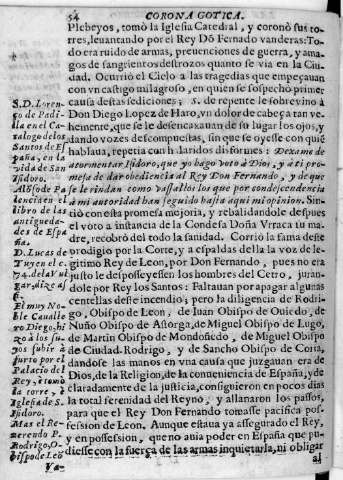 54 CORONA GOTICA.
Plebeyos, tomò la Iglesia Catedral, y coronò sus to-
rres, leuantando por el Rey Dõ Fernando vanderas: To-
do era ruido de armas, preuenciones de guerra, y ama-
gos de sangrientos destrozos quanto se via en la Ciu-
dad. Ocurriò el Cielo a las tragedias que empeçauan
con vn castigo milagroso, en quien se sospechò primer
causa destas sediciones; de repente le sobrevino à
Don Diego Lopez de Haro, vn dolor de cabeça tan ve-
hemente, que se le desencaxauan de su lugar los ojos, y
dando vozes descompuestas, sin que se oyesse con quiẽ
hablaua, repetia con alaridos disformes: Dexame de
atormentar Isidoro, que yo hago voto à Dios, y à ti pro-
mesa de dar obediencia al Rey Don Fernando, y de que
se le rindan como vassallos los que por condescendencia
à mi autoridad han seguido hasta aqui mi opinion. Sin-
tiò con esta promesa mejoria, y rebalidandole despues
el voto a instancia de la Condesa Doña Vrraca tu ma-
dre, recobrò del todo la sanidad. Corriò la fama deste
prodigio por la Corte, y a espaldas della la voz de le-
gitimo Rey de Leon, por Don Fernando, pues no era
justo le desposseyessen los hombres del Cetro, juran-
dole por Rey los Santos: Faltauan por apagar algunas
centellas deste incendio; pero la diligencia de Rodri-
go, Obispo de Leon, de Iuan Obispo de Ouiedo, de
Nuño Obispo de Astorga, de Miguel Obispo de Lugo,
de Martin Obispo de Mondoñedo, de Miguel Obispo
de Ciudad-Rodrigo, y de Sancho Obispo de Coria,
dandose las manos en vna causa que juzgauan era de
Dios, de la Religion, de la conveniencia de España, y de
claradamente de la justicia, consiguieron en pocos dias
la total serenidad del Reyno, y allanaron los passos,
para que el Rey Don Fernando tomasse pacifica pos-
session de Leon. Aunque estaua ya assegurado el Rey,
y en possession, que no auia poder en España que pu-
diesse con la fuerça de las armas inquietarla, ni obligar
al
S. D. Loren-
ço de Padi-
lla en el Ca-
talogo de los
Santos de Es
paña, en la
vida de San
Isidoro.
Alõso de Pa
lencia en el
libro de las
antigueda-
des de Espa
ña.
D. Lucas de
Tuy en el c.
74. de la Vul
gar, dize as
si.
El muy No-
ble Cauallero
Diego, hi
zo à los su-
yos subir à
furto por el
Palacio del
Rey, è tomò
la torre, è
Iglesia de S.
Isidoro.
Mas el Re-
uerendo P.
Rodrigo, O-
bispo de Leõ
Va-